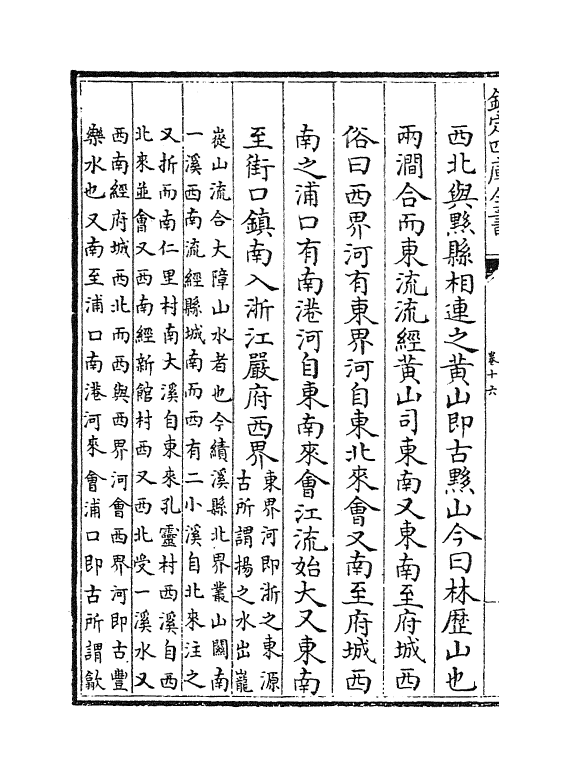 欽定四庫全書
卷十六
西北與黟縣相連之黄山即古黟山今曰林歴山也
兩澗合而東流流經黄山司東南又東南至府城西
俗曰西界河有東界河自東北來會又南至府城西
南之浦口有南港河自東南來會江流始大又東南
至街口鎮南入浙江嚴府西界
東界河即浙之東源
古所謂揚之水出巃
嵸山流合大障山水者也今績溪縣北界叢山闗南
一溪西南流經縣城南而西有二小溪自北來注之
又折而南仁里村南大溪自東來孔靈村西溪自西
北來並會又西南經新館村西又西北受一溪水又
西南經府城西北而西與西界河會西界河即古豐
樂水也又南至浦口南港河來會浦口即古所謂歙